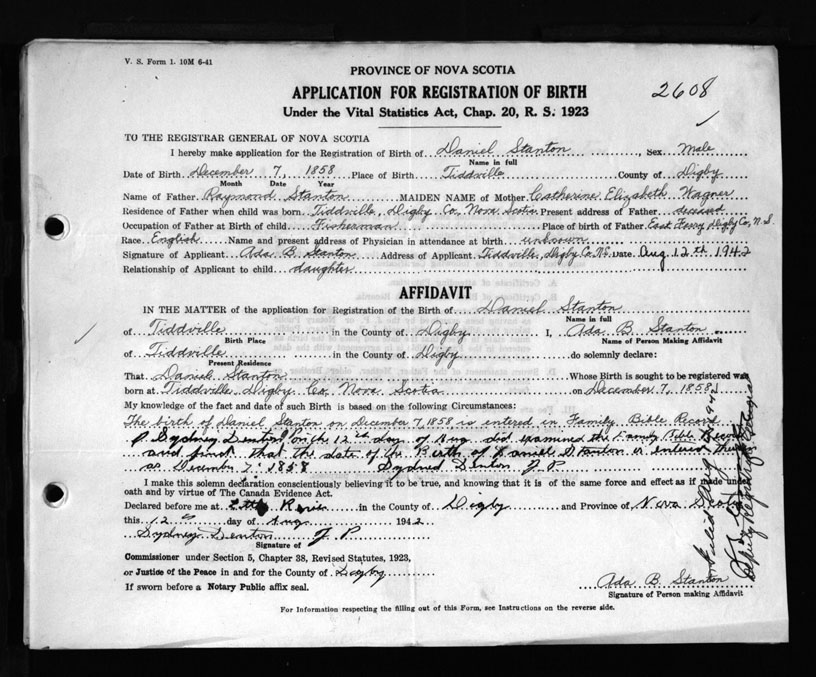 V. S. Form 1. 10M 6-41
PROVINCE OF NOVA SCOTIA
APPLICATION FOR REGISTRATION OF BIRTH
2608
Under the Vital Statistics Act, Chap. 20, R. S. 1923
TO THE REGISTRAR GENERAL OF NOVA SCOTIA
I hereby make application for the Registration of Birth of Daniel Stanton, Sex Male
Name in full
Date of Birth December 7, 1858 Place of Birth Tiddville County of Digby
Month Date Year
Name of Father Raymond Stanton MAIDEN NAME of Mother Catherine Elizabeth Wagner
Residence of Father when child was born Tiddville, Digby Co, Nova Scotia Present address of Father deceased
Occupation of Father at Birth of child Fisherman Place of birth of Father East Ferry Digby Co, N. S.
Race English Name and present address of Physician in attendance at birth unknown
Signature of Applicant Ada B. Stanton Address of Applicant Tiddville, Digby Co. N.S. Date Aug 12th 1942
Relationship of Applicant to child daughter
AFFIDAVIT
IN THE MATTER of the application for Registration of the Birth of Daniel Stanton
Name in full
of Tiddville in the County of Digby I, Ada B. Stanton
Birth Place Name of Person Making Affidavit
of Tiddville in the County of Digby do solemnly declare:
Present Residence
That Daniel Stanton Whose Birth is sought to be registered was
born at Tiddville Digby Co Nova Scotia on December 7, 1858
My knowledge of the fact and date of such Birth is based on the following Circumstances:
The birth of Daniel Stanton on December 7, 1858 is entered in Family Bible Record
I Sydney Denton on the 12th day of Aug did examined the Family Bible Record
and find that the date of the Birth of Daniel Stanton is entered
as December 7, 1858 Sydney Denton J P
I make this solemn declaration conscientiously believing it to be true, and knowing that it is of the same force and effect as if made under
oath and by virtue of The Canada Evidence Act.
Declared before me at in the County of Digby and Province of Nova Scotia
this 12 day of Aug 1942
Sydney Denton J P
Signature of
Commissioner under Section 5, Chapter 38, Revised Statutes, 1923,
or Justice of the Peace in and for the County of Digby
If sworn before a Notary Public affix seal.
Ada B. Stanton
Signature of Person making Affidavit
For Information respecting the filling out of this Form, see Instructions on the reverse side.